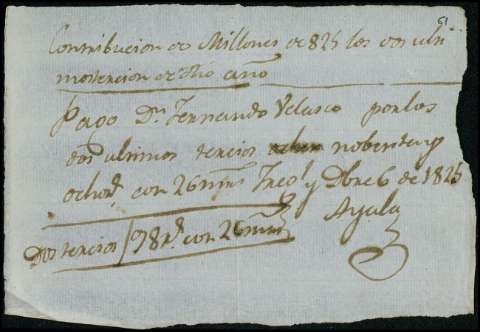 51
Contribucion de Millones de 825 los dos ulti
mos tercios de dho año
Pagó Dn. Fernando Velasco por los
dos ultimos tercios nobenta y
ocho rs. con 26 mrs y Dbre 6 de 1825
Ayala
Dos tercios 98 rs. con 26 mrs